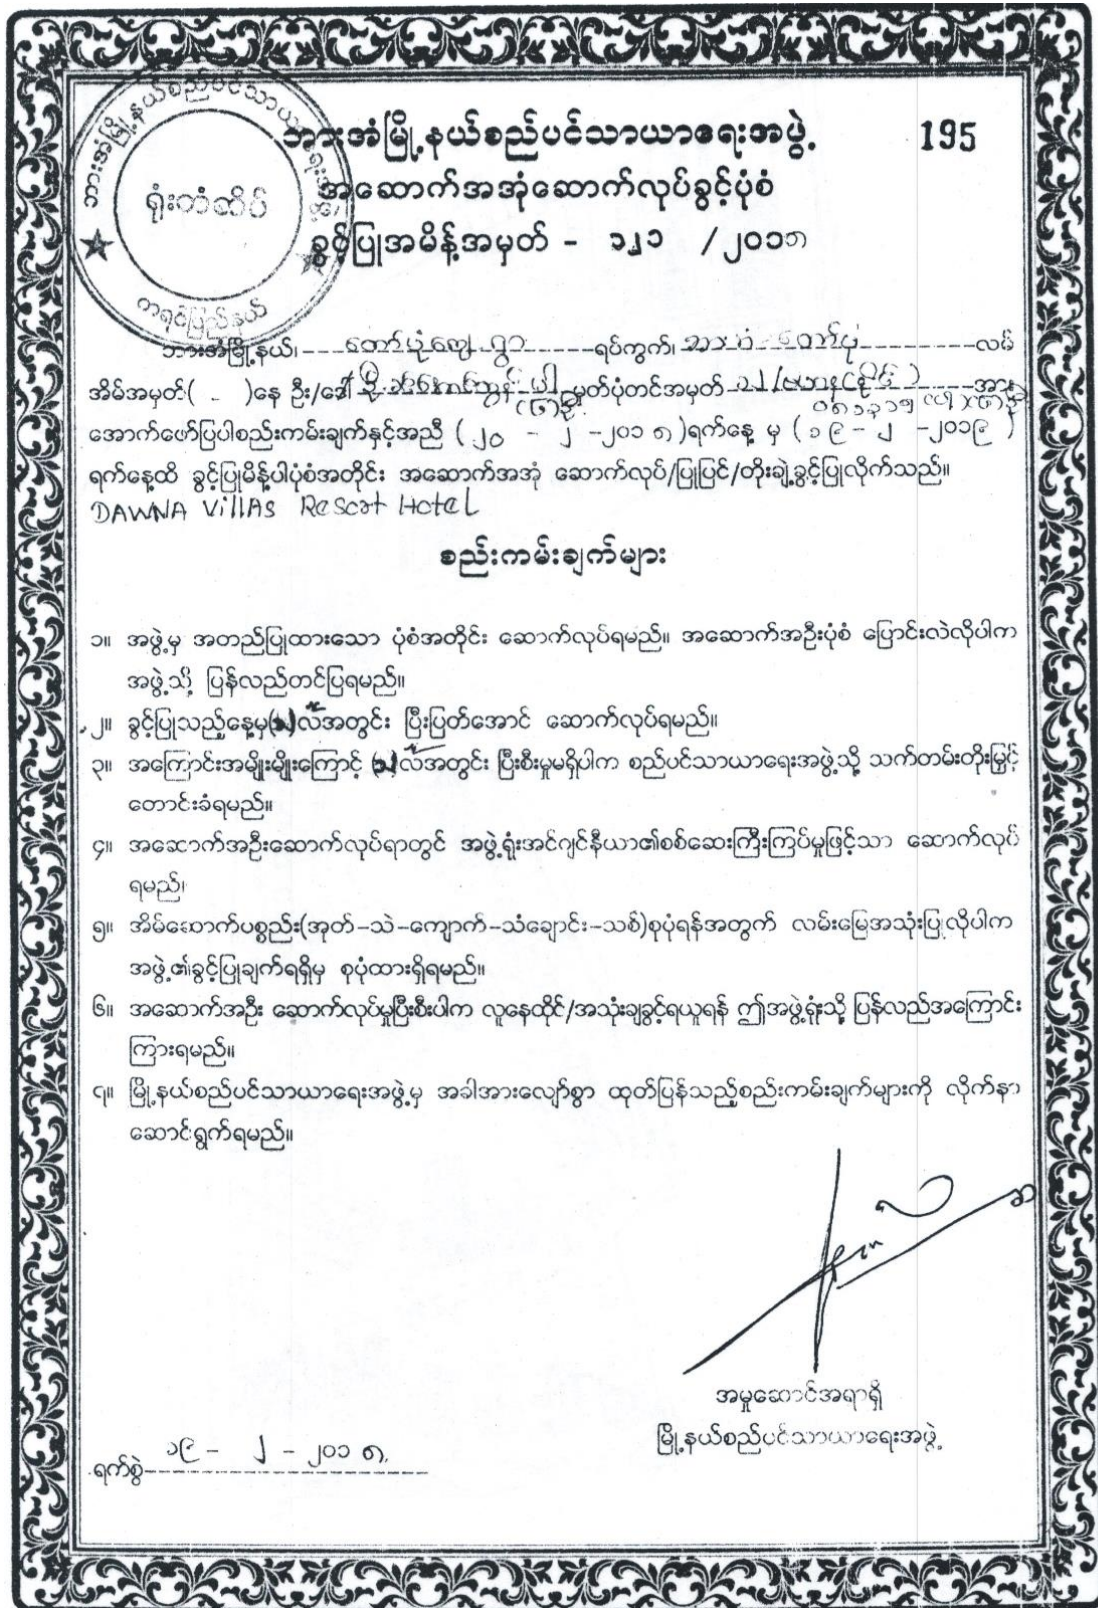 ဘားအံမြို့နယ်စည်ပင်သာယာရေးအဖွဲ့
ရုံးတံဆိပ်
ကရင်ပြည်နယ်
ဘားအံမြို့နယ်စည်ပင်သာယာရေးအဖွဲ့ 195
အဆောက်အအုံဆောက်လုပ်ခွင့်ပုံစံ
ခွင့်ပြုအမိန့်အမှတ် - ၁၂၁ /၂၀၁၈
ဘားအံမြို့နယ်၊ ရပ်ကွက်၊ လမ်း
အိမ်အမှတ်( - )နေ ဦး/ဒေါ် မှတ်ပုံတင်အမှတ် အား
အောက်ဖော်ပြပါစည်းကမ်းချက်နှင့်အညီ ( ၂၀ - ၂ -၂၀၁၈ )ရက်နေ့ မှ ( ၁၉ - ၂ -၂၀၁၉ )
ရက်နေ့ထိ ခွင့်ပြုမိန့်ပါပုံစံအတိုင်း အဆောက်အအုံ ဆောက်လုပ်/ပြုပြင်/တိုးချဲ့ခွင့်ပြုလိုက်သည်။
DAWNA VillAS Resort Hotel
စည်းကမ်းချက်များ
၁။ အဖွဲ့မှ အတည်ပြုထားသော ပုံစံအတိုင်း ဆောက်လုပ်ရမည်။ အဆောက်အဦးပုံစံ ပြောင်းလဲလိုပါက
အဖွဲ့သို့ ပြန်လည်တင်ပြရမည်။
၂။ ခွင့်ပြုသည့်နေ့မှ လအတွင်း ပြီးပြတ်အောင် ဆောက်လုပ်ရမည်။
၃။ အကြောင်းအမျိုးမျိုးကြောင့် လအတွင်း ပြီးစီးမှုမရှိပါက စည်ပင်သာယာရေးအဖွဲ့သို့ သက်တမ်းတိုးမြှင့်
တောင်းခံရမည်။
၄။ အဆောက်အဦးဆောက်လုပ်ရာတွင် အဖွဲ့ရုံးအင်ဂျင်နီယာ၏စစ်ဆေးကြီးကြပ်မှုဖြင့်သာ ဆောက်လုပ်
ရမည်၊
၅။ အိမ်ဆောက်ပစ္စည်း(အုတ်-သဲ-ကျောက်-သံချောင်း-သစ်)စုပုံရန်အတွက် လမ်းမြေအသုံးပြုလိုပါက
အဖွဲ့၏ခွင့်ပြုချက်ရရှိမှ စုပုံထားရှိရမည်။
၆။ အဆောက်အဦး ဆောက်လုပ်မှုပြီးစီးပါက လူနေထိုင်/အသုံးချခွင့်ရယူရန် ဤအဖွဲ့ရုံးသို့ ပြန်လည်အကြောင်း
ကြားရမည်။
၇။ မြို့နယ်စည်ပင်သာယာရေးအဖွဲ့မှ အခါအားလျော်စွာ ထုတ်ပြန်သည့်စည်းကမ်းချက်များကို လိုက်နာ
ဆောင်ရွက်ရမည်။
အမှုဆောင်အရာရှိ
မြို့နယ်စည်ပင်သာယာရေးအဖွဲ့
ရက်စွဲ ၁၉ - ၂ - ၂၀၁၈